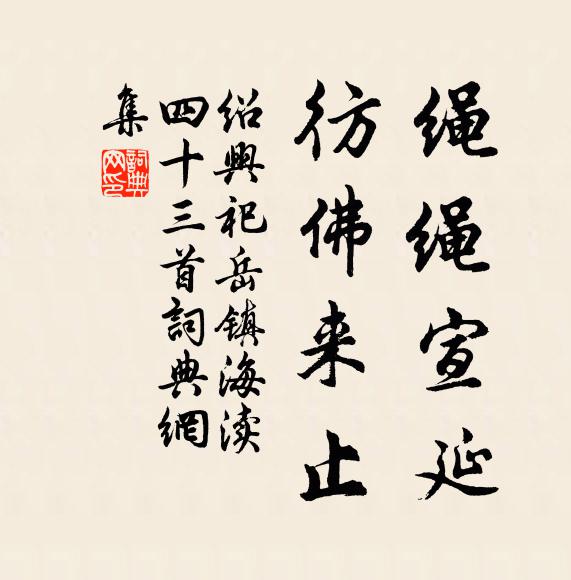 绳绳宣延
彷佛来止
绍興祀岳鎮海渎
四十三首詞典網
集
詞典网印